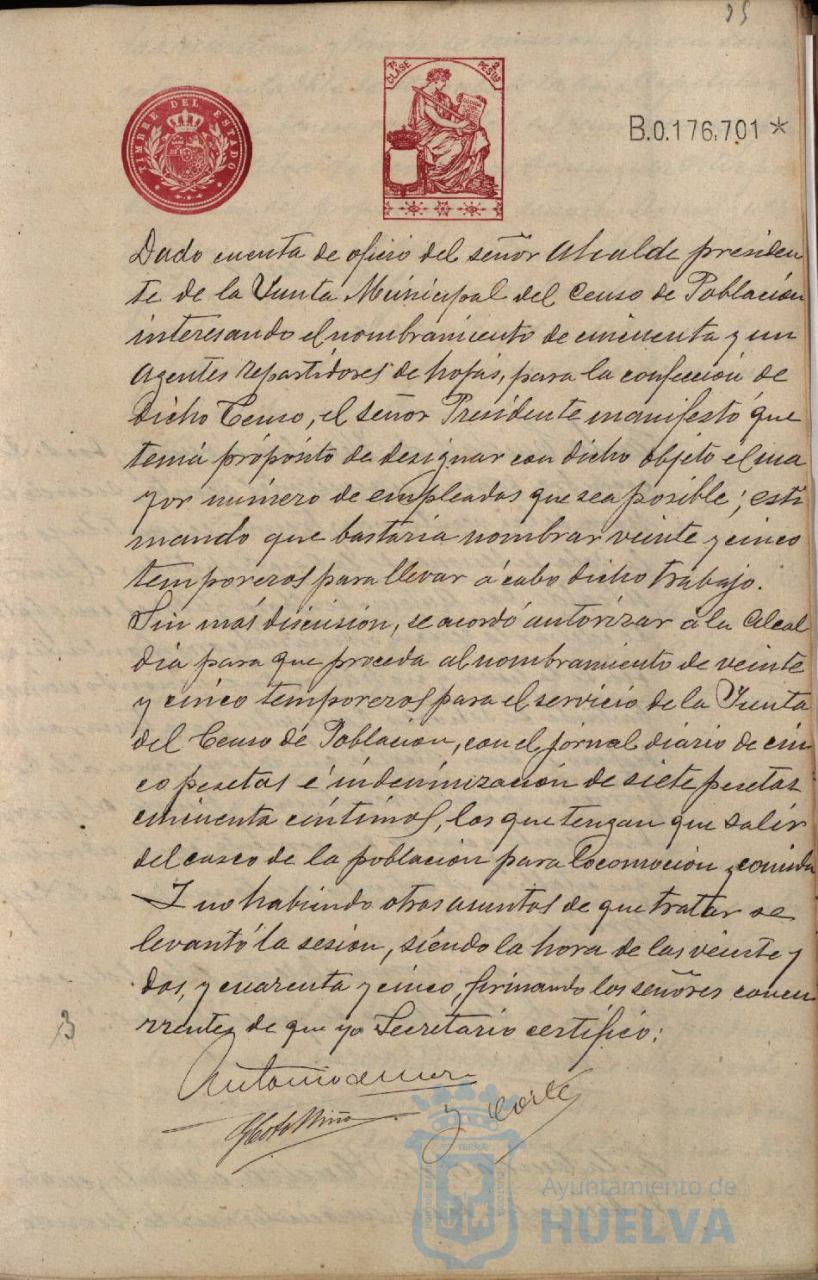 TIMBRE DEL ESTADO
7ª CLASE 2 PESTAS
B.0.176.701*
Dado cuenta de oficio del señor Alcalde presiden
te de la Junta Municipal del Censo de Población
interesando el nombramiento de cincuenta y un
Agentes repartidores de hojas, para la confección de
dicho Censo, el señor Presidente manifestó que
tenia propósito de designar con dicho objeto el ma
yor número de empleados que sea posible; esti
mando que bastaria nombrar veinte y cinco
temporeros para llevar á cabo dicho trabajo.
Sin más discusión, se acordó autorizar á la Alcal
dia para que proceda al nombramiento de veinte
y cinco temporeros para el servicio de la Junta
del Censo de Población, con el jornal diario de cin
co pesetas é indemnización de siete pesetas
cincuenta céntimos, los que tengan que salir
del casco de la población para locomoción y comida
Y no habiendo otros asuntos de que tratar se
levantó la sesión, siendo la hora de las veinte y
dos, y cuarenta y cinco, firmando los señores concu
rrentes de que yo Secretario certifico:
Antonio de
y
Ayuntamiento de
HUELVA